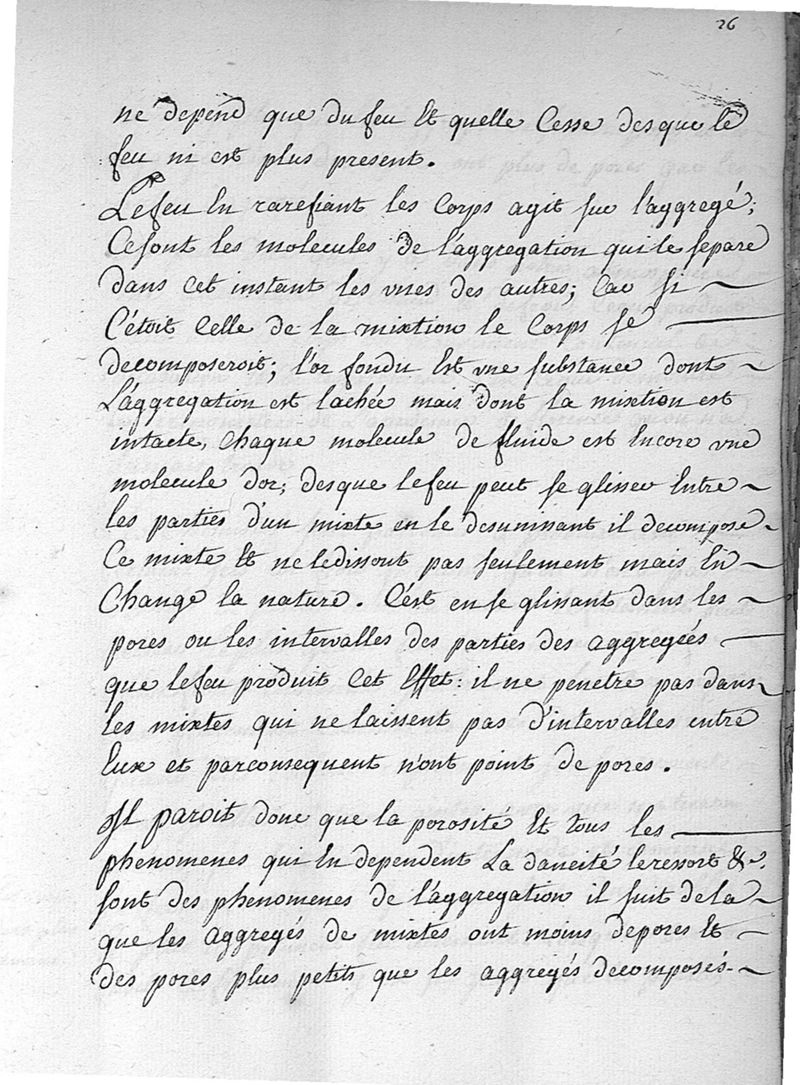 26
ne depend que du feu Et quelle Cesse desque le
feu ni est plus present.
Le feu En rarefiant les Corps agit sur l'aggregé;
Ce sont les molecules de l'aggregation qui le separe
dans cet instant les unes des autres; Car si
C'étoit Celle de la mixtion le Corps se
decomposeroit; l'or fondu Est une substance dont
L'aggregation est lachée mais dont la mixtion est
intacte, Chaque molecule de fluide est Encore une
molecule d'or; desque le feu peut se glisser Entre
les parties d'un mixte en le desunissant il decompose
Ce mixte Et ne le dissout pas seulement mais En
Change la nature. C'est en se glissant dans les
pores ou les intervalles des parties des aggregées
que le feu produit Cet Effet: il ne penetre pas dans
les mixtes qui ne laissent pas d'intervalles entre
Eux et parconsequent n'ont point de pores.
Il paroit donc que la porosité Et tous les
phenomenes qui En dependent La dancité le ressort &c.
sont des phenomenes de l'aggregation il suit de la
que les aggregés de mixtes ont moins de pores Et
des pores plus petits que les aggregés decomposés